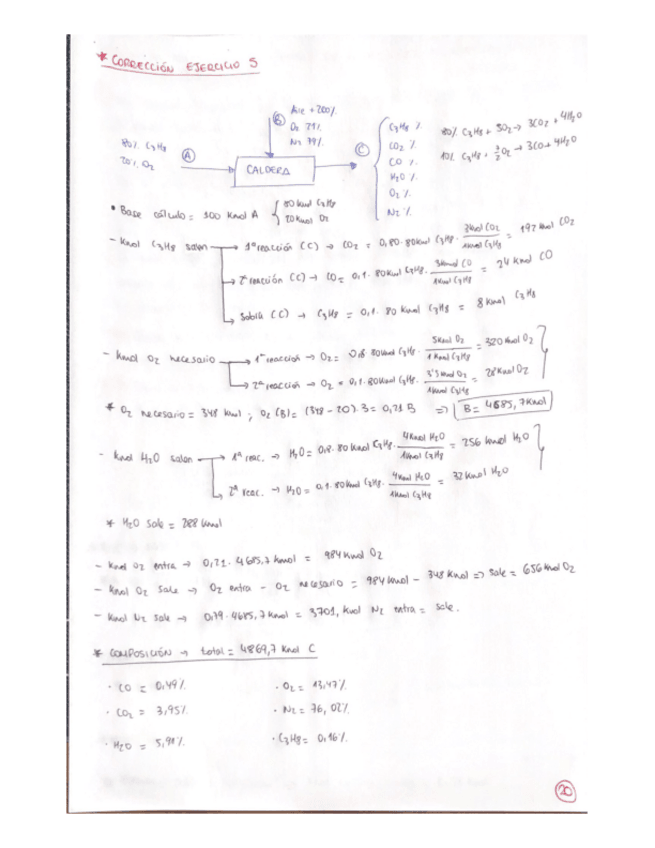 * CORRECCIÓN EJERCICIO 5
Aire + 200%
O2 21%
N2 79%
B
80% C3H8
20% O2
A
CALDERA
C
C3H8 %
CO2 %
CO %
H2O %
O2 %
N2 %
80% C3H8 + 5O2 → 3CO2 + 4H2O
10% C3H8 + 7/2 O2 → 3CO + 4H2O
• Base cálculo = 100 Kmol A { 80 kmol C3H8
20 kmol O2
- Kmol C3H8 salen → 1ª reacción (C) → CO2 = 0,80 · 80 kmol C3H8 · 3 kmol CO2 / 1 kmol C3H8 = 192 kmol CO2
→ 2ª reacción (C) → CO = 0,1 · 80 kmol C3H8 · 3 kmol CO / 1 kmol C3H8 = 24 kmol CO
→ Sobra (C) → C3H8 = 0,1 · 80 kmol C3H8 = 8 kmol C3H8
- Kmol O2 necesario → 1ª reacción → O2 = 0,8 · 80 kmol C3H8 · 5 kmol O2 / 1 kmol C3H8 = 320 kmol O2
→ 2ª reacción → O2 = 0,1 · 80 kmol C3H8 · 3'5 kmol O2 / 1 kmol C3H8 = 28 kmol O2
* O2 necesario = 348 kmol ; O2 (B) = (348 - 20) · 3 = 0,21 B ⇒ B = 4685,7 kmol
- Kmol H2O salen → 1ª reac. → H2O = 0,8 · 80 kmol C3H8 · 4 kmol H2O / 1 kmol C3H8 = 256 kmol H2O
→ 2ª reac. → H2O = 0,1 · 80 kmol C3H8 · 4 kmol H2O / 1 kmol C3H8 = 32 kmol H2O
* H2O sale = 288 kmol
- Kmol O2 entra → 0,21 · 4685,7 kmol = 984 kmol O2
- Kmol O2 sale → O2 entra - O2 necesario = 984 kmol - 348 kmol ⇒ sale = 656 kmol O2
- Kmol N2 sale → 0,79 · 4685,7 kmol = 3701, kmol N2 entra = sale.
* COMPOSICIÓN → total = 4869,7 kmol C
· CO = 0,49%
· O2 = 13,47%
· CO2 = 3,95%
· N2 = 76,02%
· H2O = 5,91%
· C3H8 = 0,16%
20